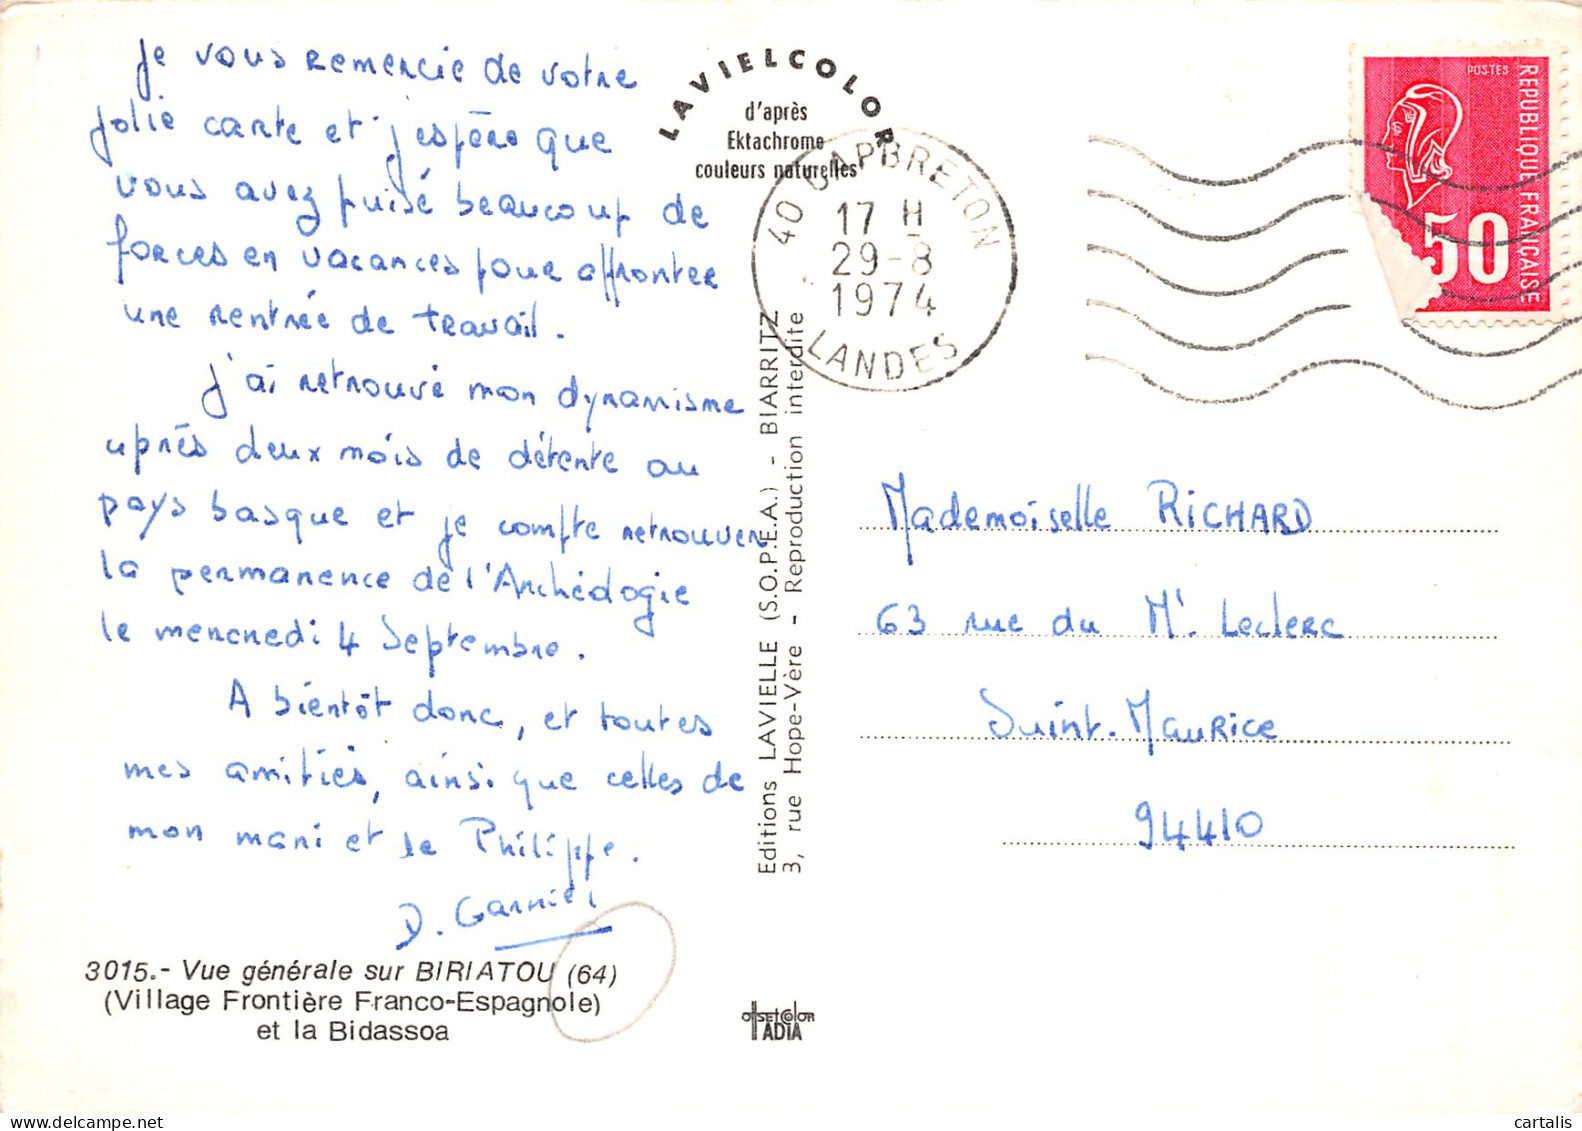 Je vous remercie de votre
jolie carte et j'espère que
vous avez puisé beaucoup de
forces en vacances pour affronter
une rentrée de travail.
J'ai retrouvé mon dynamisme
après deux mois de détente au
pays basque et je compte retrouver
la permanence de l'Archéologie
le mercredi 4 Septembre.
A bientôt donc, et toutes
mes amitiés, ainsi que celles de
mon mari et de Philippe.
D. Garnier
3015.- Vue générale sur BIRIATOU (64)
(Village Frontière Franco-Espagnole)
et la Bidassoa
LAVIELCOLOR
d'après
Ektachrome
couleurs naturelles
Editions LAVIELLE (S.O.P.E.A.) - BIARRITZ
3, rue Hope-Vère - Reproduction interdite
offset color
ADIA
40 CAPBRETON
17 H
29-8
1974
LANDES
POSTES
REPUBLIQUE FRANÇAISE
50
Mademoiselle RICHARD
63 rue du Ml. Leclerc
Saint-Maurice
94410
cartalis